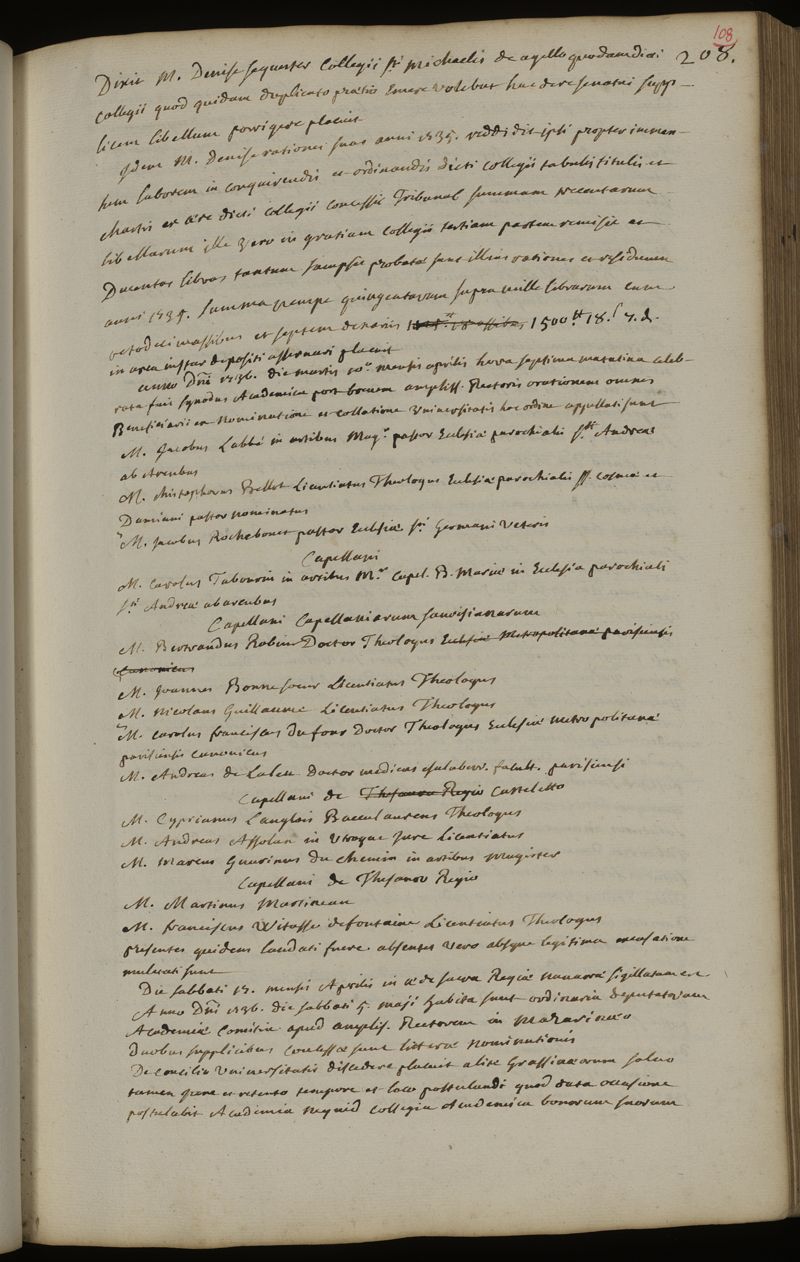 108
208.
Dixit M. Denise sequester Collegii sti Michaelis de agello quodam dicti
Collegii quod quidam duplicato pretio Emere volebat hac de re senatui supp-
licem libellum porrigere placuit
Idem M. Denise rationes suas anni 1735. reddidit ipsi propter immen-
sum laborem in conquirendis et ordinandis dicti collegii tabulis titulis et
chartis ex aere dicti collegii concessit Tribunal summam trecentarum
libellarum ille vero in gratiam collegii tertiam partem remisit et
Ducentas libras tantum sumpsit probatae sunt illius rationes et residuum
anni 1735. summa nempe quingentarum supra mille librarum cum
octodecim assibus et septem denariis 1500.tt 18.s 7.d.
in arca instar depositi asservari placuit
anno Dni 1736. die martis 10o mensis aprilis hora septima matutina celeb-
rata fuit synodus Academica post ampliss. Rectoris orationem omnes
Beneficiarii ex nominatione et collatione Universitatis hoc ordine appellati sunt
M. Jacobus Labbé in artibus Magr pastor Eclesiae parochialis sti Andreae
ab Arcubus
M. christophorus Bellot Licentiatus Theologus Eclesiae parochialis ss. cosmae et
Damiani pastor nominatus
M. Jacobus Rochebouet pastor Eclesiae sti Germani Veteris
Capellani
M. Carolus Tabourin in artibus Mr Capel. B. Mariae in Eclesia parochiali
sti Andreae ab arcubus
Capellani Capellaniarum savoisianarum
M. Bertrandus Robine Doctor Theologus Eclesiae Metropolitanae parisiensis
Canonicus
M. Joannes Bonnesoeur Licentiatus Theologus
M. Nicolaus Guillaume Licentiatus Theologus
M. Carolus franciscus Dufour Doctor Theologus Eclesiae metropolitanae
parisiensis canonicus
M. Andreas de Laleu Doctor medicus saluberr. facult. parisiensis
Capellani de Thesauro Regio Castelletto
M. Cyprianus Langlois Baccalaureus Theologus
M. Andreas Assolan in Utroque Jure Licentiatus
M. Marcus Guarinus du chemin in artibus magister
Capellani de Thesauro Regio
M. Martinus Martineau
M. franciscus Witasse defontaine Licentiatus Theologus
presentes quidem laudati fuere. absentes vero absque legitima excusatione
mulctati sunt
Die sabbati mensis Aprilis in aede sacra Regiae navarrae sigillatum est
Anno Dni 1736. die sabbati 5. maji habita sunt ordinaria Deputatorum
Academiae Comitia apud ampliss. Rectorem in Mazarinaeo
Duobus supplicibus concessae sunt litterae nominationis
De concilio Universitatis discedere placuit a lite Grassinaeorum salvo
tamen jure et retento tempore et loco postulandi quod data occasione
postulabit Academia nequid collegia Academica bonorum suorum